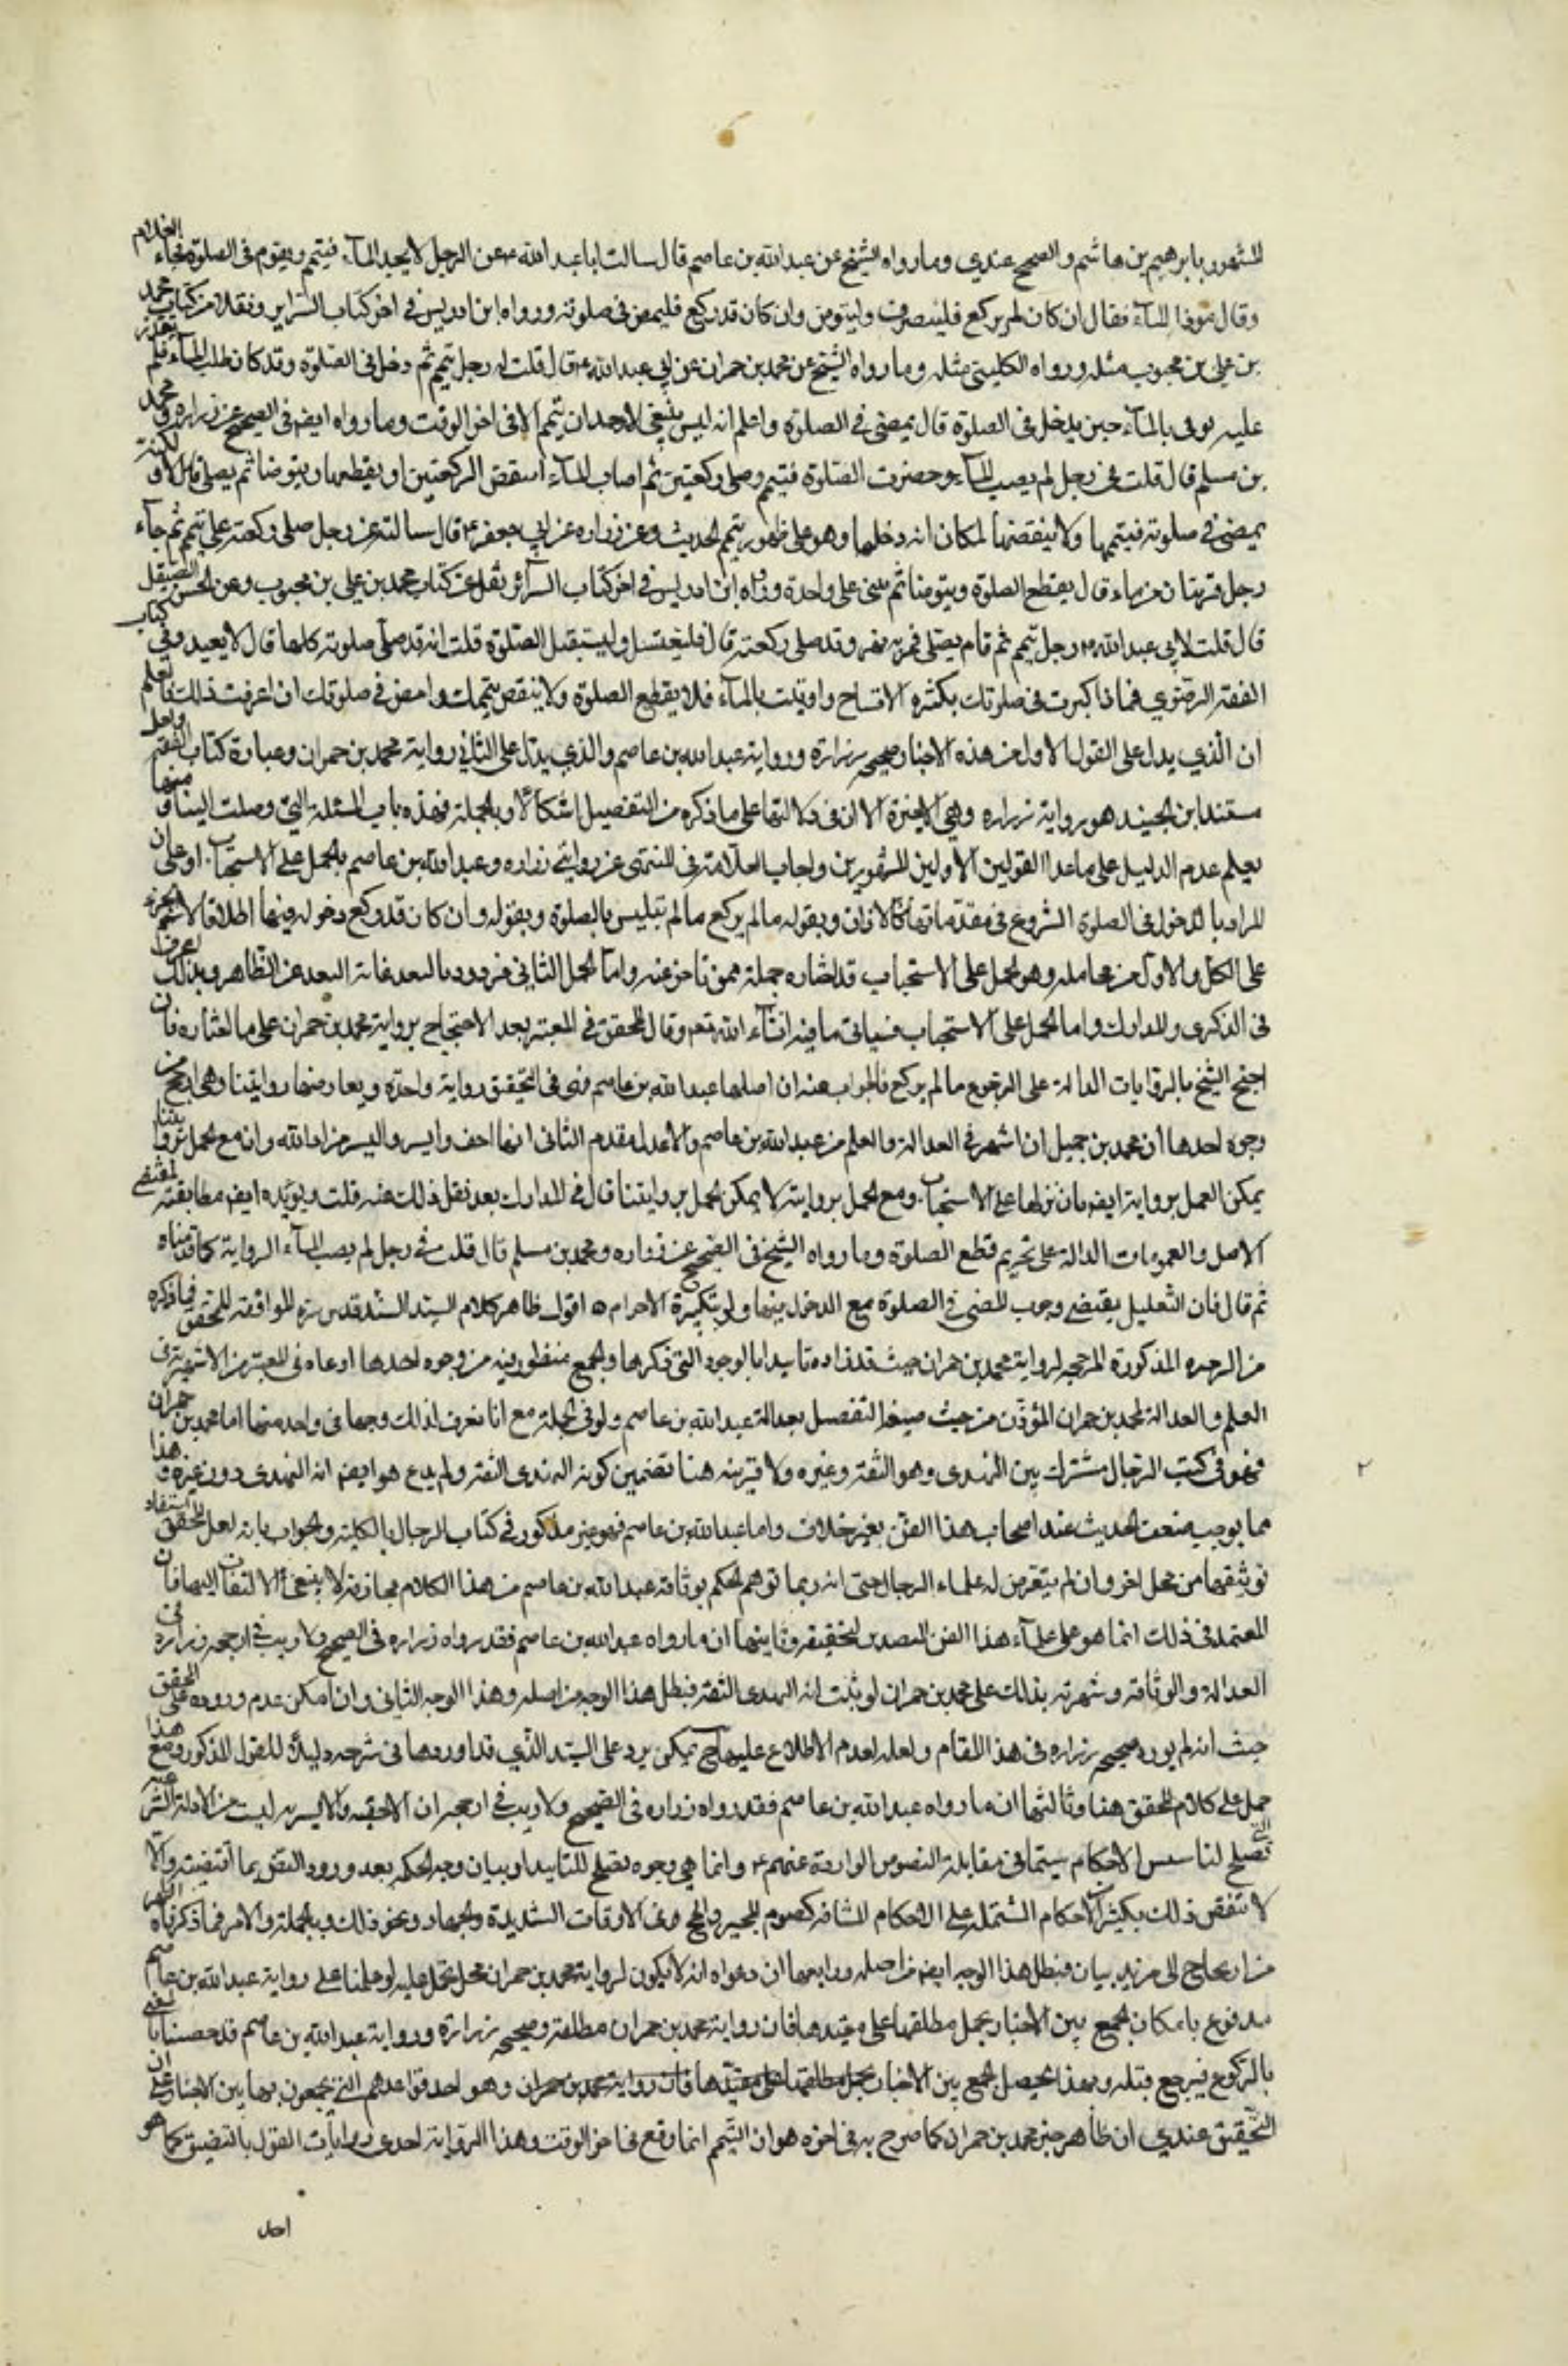 المشهور بابرهيم بن هاشم والصحيح عندي وما رواه الشيخ عن عبدالله بن عاصم قال سالت ابا عبد الله ع عن الرجل لا يجد المآء فيتيمم ويقوم في الصلوة فجاء الغلام
وقال هوذا المآء فقال ان كان لم يركع فلينصرف وليتوض وان كان قد ركع فليمض في صلوته ورواه ابن ادريس في اخر كتاب السراير ونقلا من كتاب محمد
بن علي بن محبوب مثله ورواه الكليني مثله وما رواه الشيخ عن محمد بن حمران عن ابي عبد الله ع قال قلت له رجل تيمم ثم دخل في الصلوة وقد كان طلب المآء فلم يقدر
عليه يوتى بالمآء حين يدخل في الصلوة قال يمضي في الصلوة واعلم انه ليس ينبغي لاحد ان يتيمم الا في اخر الوقت وما رواه ايضا في الصحيح عن زراره ومحمد
بن مسلم قال قلت في رجل لم يصب المآء وحضرت الصلوة فتيمم وصلى ركعتين ثم اصاب المآء اينقض الركعتين او يقطعهما ويتوضا ثم يصلي قال لا ولكنه
يمضي في صلوته فيتمها ولا ينقضها لمكان انه دخلها وهو على طهور بتيمم الحديث وعن زراره عن ابي جعفر ع قال سالته عن رجل صلى ركعة على تيمم ثم جآء
رجل قربتان من ماء قال يقطع الصلوة ويتوضا ثم يبني على واحدة ورواه ابن ادريس في اخر كتاب السرائر نقلا عن كتاب محمد بن علي بن محبوب وعن الحسن الصيقل
قال قلت لابي عبد الله ع رجل تيمم ثم قام يصلي فمر به نهر وقد صلى ركعة قال فليغتسل وليستقبل الصلوة قلت انه قد صلى صلوته كلها قال لا يعيد وفي كتاب
الفقه الرضوي فاذا كبرت في صلوتك بكثرة الافتتاح واوتيت بالمآء فلا يقطع الصلوة ولا ينقض تيممك وامض في صلوتك ان اعرفت ذلك فاعلم
ان الذي يدل على القول الاول من هذه الاخبار صحيحة زرارة ورواية عبد الله بن عاصم والذي يدل على الثاني رواية محمد بن حمران وعبارة كتاب الفقه ولعل
مستند ابن الجنيد هو رواية زراره وهي الاخيرة الا ان في دلالتها على ما ذكره من التفصيل اشكالا وبالجملة فهذه باب المسئلة التي وصلت الينا ومنها
يعلم عدم الدليل على ما عدا القولين الاولين المشهورين واجاب العلامة في المنتهى عن روايتي زراره وعبد الله بن عاصم بالحمل على الاستحباب او على ان
المراد بالدخول في الصلوة الشروع في مقدماتها كالاذان وبقوله ما لم يركع ما لم يتلبس بالصلوة وبقوله وان كان قد ركع دخوله فيها اطلاقا لاسم الجزء
على الكل والاول من محامله وهو الحمل على الاستحباب قد اختاره جملة ممن تاخر عنه واما الحمل الثاني فمردود بالبعد غاية البعد عن الظاهر وبذلك يعرف
في الذكرى والمدارك واما الحمل على الاستحباب فسياتي ما فيه انشآء الله تعم وقال المحقق في المعتبر بعد الاحتجاج برواية محمد بن حمران على ما اختاره فان
احتج الشيخ بالروايات الدالة على الرجوع ما لم يركع فالجواب عنه ان اصلها عبد الله بن عاصم فهي في التحقيق رواية واحدة ويعارضها روايتنا وهي ارجح من
وجوه احدها ان محمد بن جميل ان اشهر في العدالة والعلم من عبد الله بن عاصم والاعدل مقدم الثاني انها اخف وايسر واليسر مراد الله وان مع العمل بروايتنا
يمكن العمل بروايته ايضه بان ننزلها على الاستحباب ومع العمل بروايته لا يمكن العمل بروايتنا قال في المدارك بعد نقل ذلك عنه قلت ويؤيده ايضه مطابقته لمقتضى
الاصل والعمومات الدالة على تحريم قطع الصلوة وما رواه الشيخ في الصحيح عن زراره ومحمد بن مسلم قال قلت في رجل لم يصب المآء الرواية كما قدمناه
ثم قال فان التعليل يقتضي وجوب المضي في الصلوة مع الدخول فيها ولو بتكبيرة الاحرام ه اقول ظاهر كلام السيد السند قدس سره الموافقة للمحقق فيما ذكره
من الوجوه المذكورة المرجحه لرواية محمد بن حمران حيث قد زاده تاييدا بالوجوه التي ذكرها والجمع منظور فيه من وجوه احدها ادعاه في المعتبر من الاشهرية في
العلم والعدالة لمحمد بن حمران المؤذن من حيث صيغه التفضيل بعدالة عبد الله بن عاصم ولو في الجملة مع انا لا نعرف لذلك وجها في واحد منهما اما محمد بن حمران
فهو في كتب الرجال مشترك بين النهدي وهو الثقة وغيره ولا قرينه هنا تضمين كونه النهدي الثقة ولم يدع هو ايضه انه النهدي دون غيره وهذا
مما يوجب ضعف الحديث عند اصحاب هذا الفن بغير خلاف واما عبد الله بن عاصم فهو غير مذكور في كتاب الرجال بالكلية والجواب بانه لعل المحقق استفاد
توثيقهما من محل اخر وان لم يتعرض له علماء الرجال حتى انه ربما توهم الحكم بوثاقة عبد الله بن عاصم من هذا الكلام مجازفة لا ينبغي الالتفات اليها فان
المعتمد في ذلك انما هو على علمآء هذا الفن المتصدين لتحقيقه وثانيها ان ما رواه عبد الله بن عاصم فقد رواه زراره في الصحيح ولا ريب في ارجحية زرارة في
العدالة والوثاقة وشهرته بذلك على محمد بن حمران لو ثبت انه النهدي الثقة فبطل هذا الوجه من اصله وهذا الوجه الثاني وان امكن عدم وروده على المحقق
حيث انه لم يورد صحيحه زراره في هذا المقام ولعله لعدم الاطلاع عليها ح يمكن يرد على السيد الذي قد اوردها في شرحه دليلا للقول المذكور ومع هذا
حمل على كلام المحقق هنا وثالثها ان ما رواه عبد الله بن عاصم فقد رواه زراره في الصحيح ولا ريب في ارجحه ان الاخفيه والايسريه ليست من الادلة الشرعيه التي
تصلح لتاسيس الاحكام سيما في مقابلة النصوص الوارده عنهم ع وانما هي وجوه تصلح للتاييد او بيان وجه الحكمه بعد ورود النص بما اقتضته والا
لا تنقض ذلك بكثير الاحكام الشتملة على الاحكام الشاقه كصوم الهجير والحج في الاوقات الشديدة والجهاد ونحو ذلك وبالجملة والامر فيما ذكرناه اظهر
من ان يحتاج الى مزيد بيان فبطل هذا الوجه ايضه من اصله ورابعها ان دعواه انه لا يكون لرواية محمد بن حمران محمل تحمل عليه لو عملنا على رواية عبد الله بن عاصم
مدفوع بامكان الجمع بين الاخبار بحمل مطلقها على مقيدها فان رواية محمد بن حمران مطلقة وصحيحه زرارة ورواية عبد الله بن عاصم قد خصصتا
بالركوع فيرجع قبله وبهذا يحصل الجمع بين الاخبار بحمل مطلقها على مقيدها فان رواية محمد بن حمران وهو احد قواعدهم التي يجمعون بها بين الاخبار على ان
التحقيق عندي ان ظاهر خبر محمد بن حمران كما صرح به في اخره هو ان التيمم انما وقع في اخر الوقت وهذا الرواية احدى روايات القول بالتضيق كما هو
احد
٢